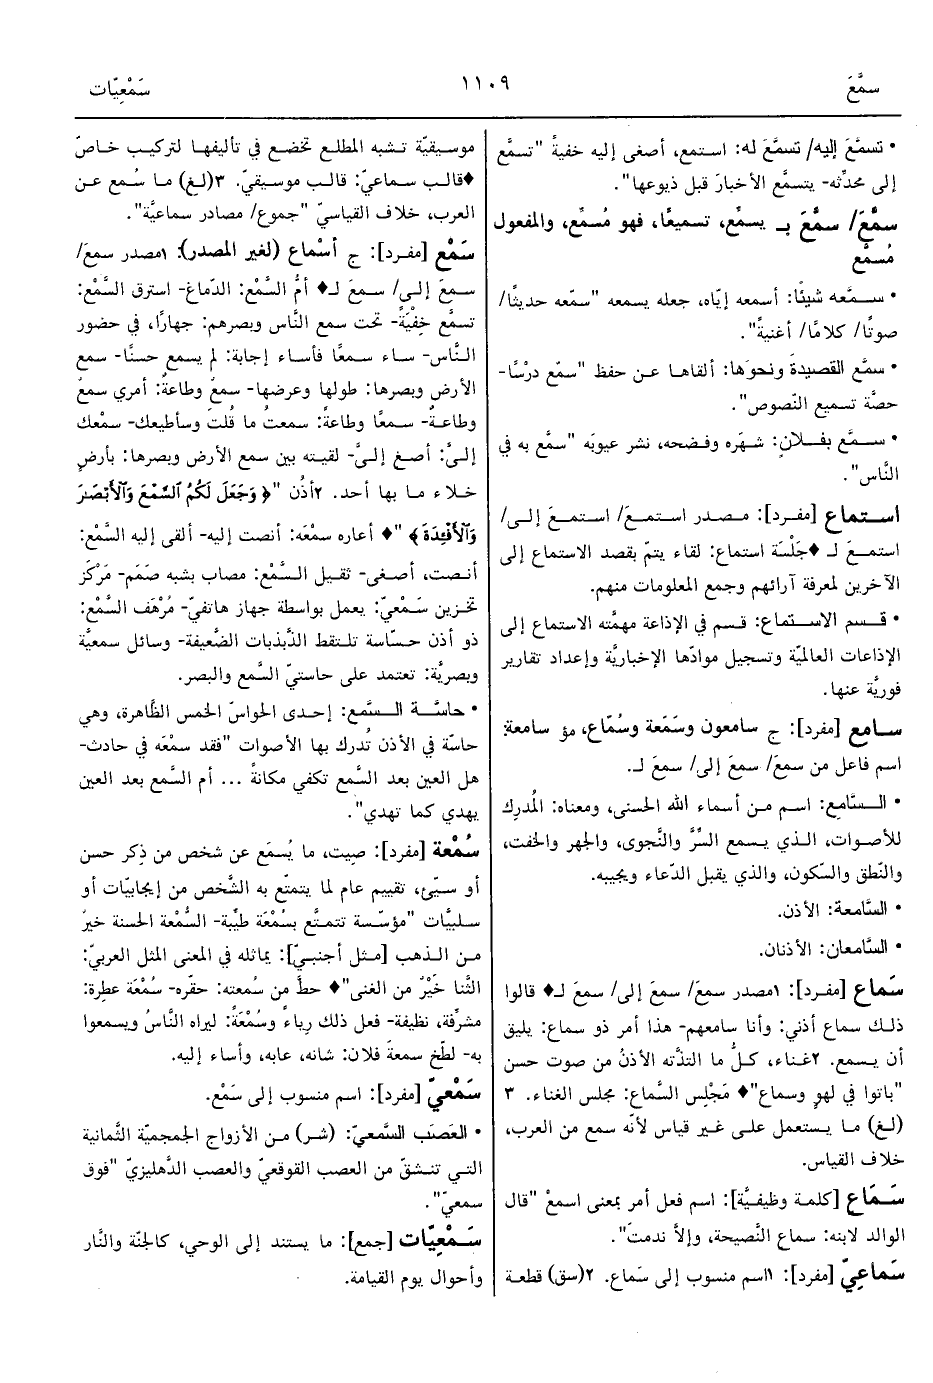 سمَّعَ
١١٠٩
سَمْعِيّات
• تسمَّعَ إليه/ تسمَّعَ له: استمع، أصغى إليه خفيةً "تسمَّع
إلى محدِّثه- يتسمَّع الأخبارَ قبل ذيوعها".
سمَّعَ/ سمَّعَ بـ يسمِّع، تسميعًا، فهو مُسمِّع، والمفعول
مُسمَّع
• سـمَّعه شيئًا: أسمعه إيّاه، جعله يسمعه "سمّعه حديثًا/
صوتًا/ كلامًا/ أغنيةً".
• سمَّع القصيدةَ ونحوَها: ألقاها عـن حفظ "سمّع درْسًا-
حصَّة تسميع النّصوص".
• سـمَّع بفـلان: شهَره وفـضحه، نشر عيوبَه "سمَّع به في
النَّاس".
استـماع [مفـرد]: مـصدر استـمعَ/ استـمعَ إلـى/
استمعَ لـ ♦جَلْسَة استماع: لقاء يتمّ بقصد الاستماع إلى
الآخرين لمعرفة آرائهم وجمع المعلومات منهم.
• قـسم الاسـتماع: قسم في الإذاعة مهمَّته الاستماع إلى
الإذاعات العالميّة وتسجيل موادّها الإخباريَّة وإعداد تقارير
فوريَّة عنها.
سـامع [مفرد]: ج سامعون وسَمَعة وسُمّاع، مؤ سامعة:
اسم فاعل من سمعَ/ سمعَ إلى/ سمعَ لـ.
• الـسَّامع: اسـم مـن أسماء الله الحسنى، ومعناه: المُدرِك
للأصوات، الـذي يـسمع السِّرَّ والنَّجوى، والجهر والخفت،
والنّطق والسّكون، والذي يقبل الدّعاء ويجيبه.
• السَّامعة: الأذن.
• السَّامعان: الأذنان.
سَماع [مفرد]: ١مصدر سمعَ/ سمعَ إلى/ سمعَ لـ♦ قالوا
ذلـك سماع أذني: وأنا سامعهم- هذا أمر ذو سماع: يليق
أن يـسمع. ٢غـناء، كـلُّ ما التذّته الأذنُ من صوت حسن
"باتوا في لهوٍ وسماع"♦ مَجْلِس السَّماع: مجلس الغناء. ٣
(لـغ) مـا يـستعمل علـى غـير قياس لأنّه سمع من العرب،
خلاف القياس.
سَـمَاعِ [كلمـة وظيفـيَّة]: اسـم فعل أمر بمعنى اسمعْ "قال
الوالد لابنه: سماعِ النَّصيحة، وإلاَّ ندمتَ".
سَماعِيّ [مفرد]: ١اسم منسوب إلى سَماع. ٢(سق) قطعة
موسـيقيّة تـشبه المطلع تخضع في تأليفهـا لتركيب خـاصّ
♦قالـب سماعـيّ: قالب موسيقيّ. ٣(لغ) مـا سُمع عـن
العرب، خلاف القياسيّ "جموع/ مصادر سماعيَّة".
سَمْع [مفرد]: ج أسْماع (لغير المصدر): ١مصدر سمعَ/
سمـعَ إلـى/ سمـعَ لـ♦ أمُّ السَّمْع: الدّماغ- استرق السَّمْع:
تسمَّع خِفْيَةً- تحت سمع النّاس وبصرهم: جهارًا، في حضور
النَّاس- سـاء سـمعًا فأساء إجابة: لم يسمع حسنًا- سمع
الأرض وبصرها: طولها وعرضها- سمعٌ وطاعةٌ: أمري سمعٌ
وطاعـةٌ- سـمعًا وطاعةً: سمعتُ ما قُلتَ وسأطيعك- سمْعك
إلـيَّ: أصـغِ إلـيَّ- لقيـته بين سمع الأرض وبصرها: بأرضٍ
خـلاء مـا بها أحد. ٢أذُن "﴿ وَجَعَلَ لَكُمُ السَّمْعَ وَالأَبْصَارَ
وَالأَفْئِدَةَ ﴾ "♦ أعاره سمْعَه: أنصت إليه- ألقى إليه السَّمْعَ:
أنـصت، أصـغى- ثقـيل الـسَّمْع: مصاب بشبه صَمَم- مَرْكَز
تخـزين سَـمْعيّ: يعمل بواسطة جهاز هاتفيّ- مُرْهَف السَّمْع:
ذو أذن حـسّاسة تلـتقط الذَّبذبات الضَّعيفة- وسائل سمعيَّة
وبصريَّة: تعتمد على حاستيّ السَّمع والبصر.
• حاسَّـة الـسَّمع: إحـدى الحواسّ الخمس الظّاهرة، وهي
حاسَّة في الأذن تُدرك بها الأصوات "فقد سمْعَه في حادث-
هل العين بعد السَّمع تكفي مكانةً ... أم السَّمع بعد العين
يهدي كما تهدي".
سُمْعة [مفرد]: صِيت، ما يُسمَع عن شخص من ذِكر حسن
أو سـيّئ، تقييم عام لما يتمتَّع به الشَّخص من إيجابيّات أو
سلبيَّات "مؤسّسة تتمتَّع بسُمْعَة طيِّبة- السُّمْعة الحسنة خيرٌ
مـن الـذهب [مـثل أجنبـيّ]: يماثله في المعنى المثل العربيّ:
الثَّنا خَيْرٌ من الغنى"♦ حطَّ من سُمعته: حقّره- سُمْعَة عطِرة:
مشرِّفة، نظيفة- فعل ذلك رياءً وسُمْعَةً: ليراه النَّاسُ ويسمعوا
به- لطّخ سمعةَ فلان: شانه، عابه، وأساء إليه.
سَمْعيّ [مفرد]: اسم منسوب إلى سَمْع.
• العَصَب السَّمعيّ: (شر) مـن الأزواج الجمجميّة الثَّمانية
التي تنـشقّ من العصب القوقعيّ والعصب الدِّهليزيّ "فوق
سمعيّ".
سَـمْعِيّات [جمع]: ما يستند إلى الوحي، كالجنّة والنَّار
وأحوال يوم القيامة.